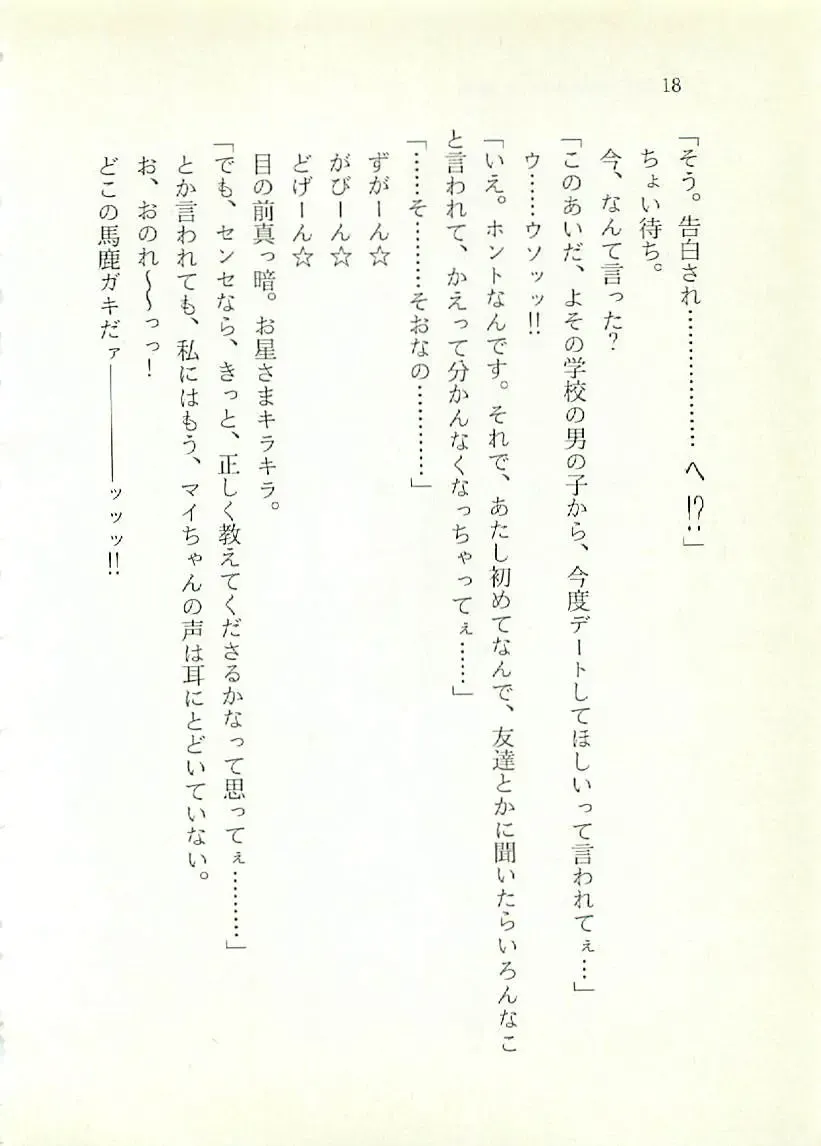 18
「そう。告白され………………へ!?」
ちょい待ち。
今、なんて言った?
「このあいだ、よその学校の男の子から、今度デートしてほしいって言われてぇ…」
ウ……ウソッッ!!
「いえ。ホントなんです。それで、あたし初めてなんで、友達とかに聞いたらいろんなこ
と言われて、かえって分かんなくなっちゃってぇ……」
「……そ………そおなの…………」
ずがーん☆
がびーん☆
どげーん☆
目の前真っ暗。お星さまキラキラ。
「でも、センセなら、きっと、正しく教えてくださるかなって思ってぇ………」
とか言われても、私にはもう、マイちゃんの声は耳にとどいていない。
お、おのれ〜〜っっ!
どこの馬鹿ガキだァ―――――ッッッ!!